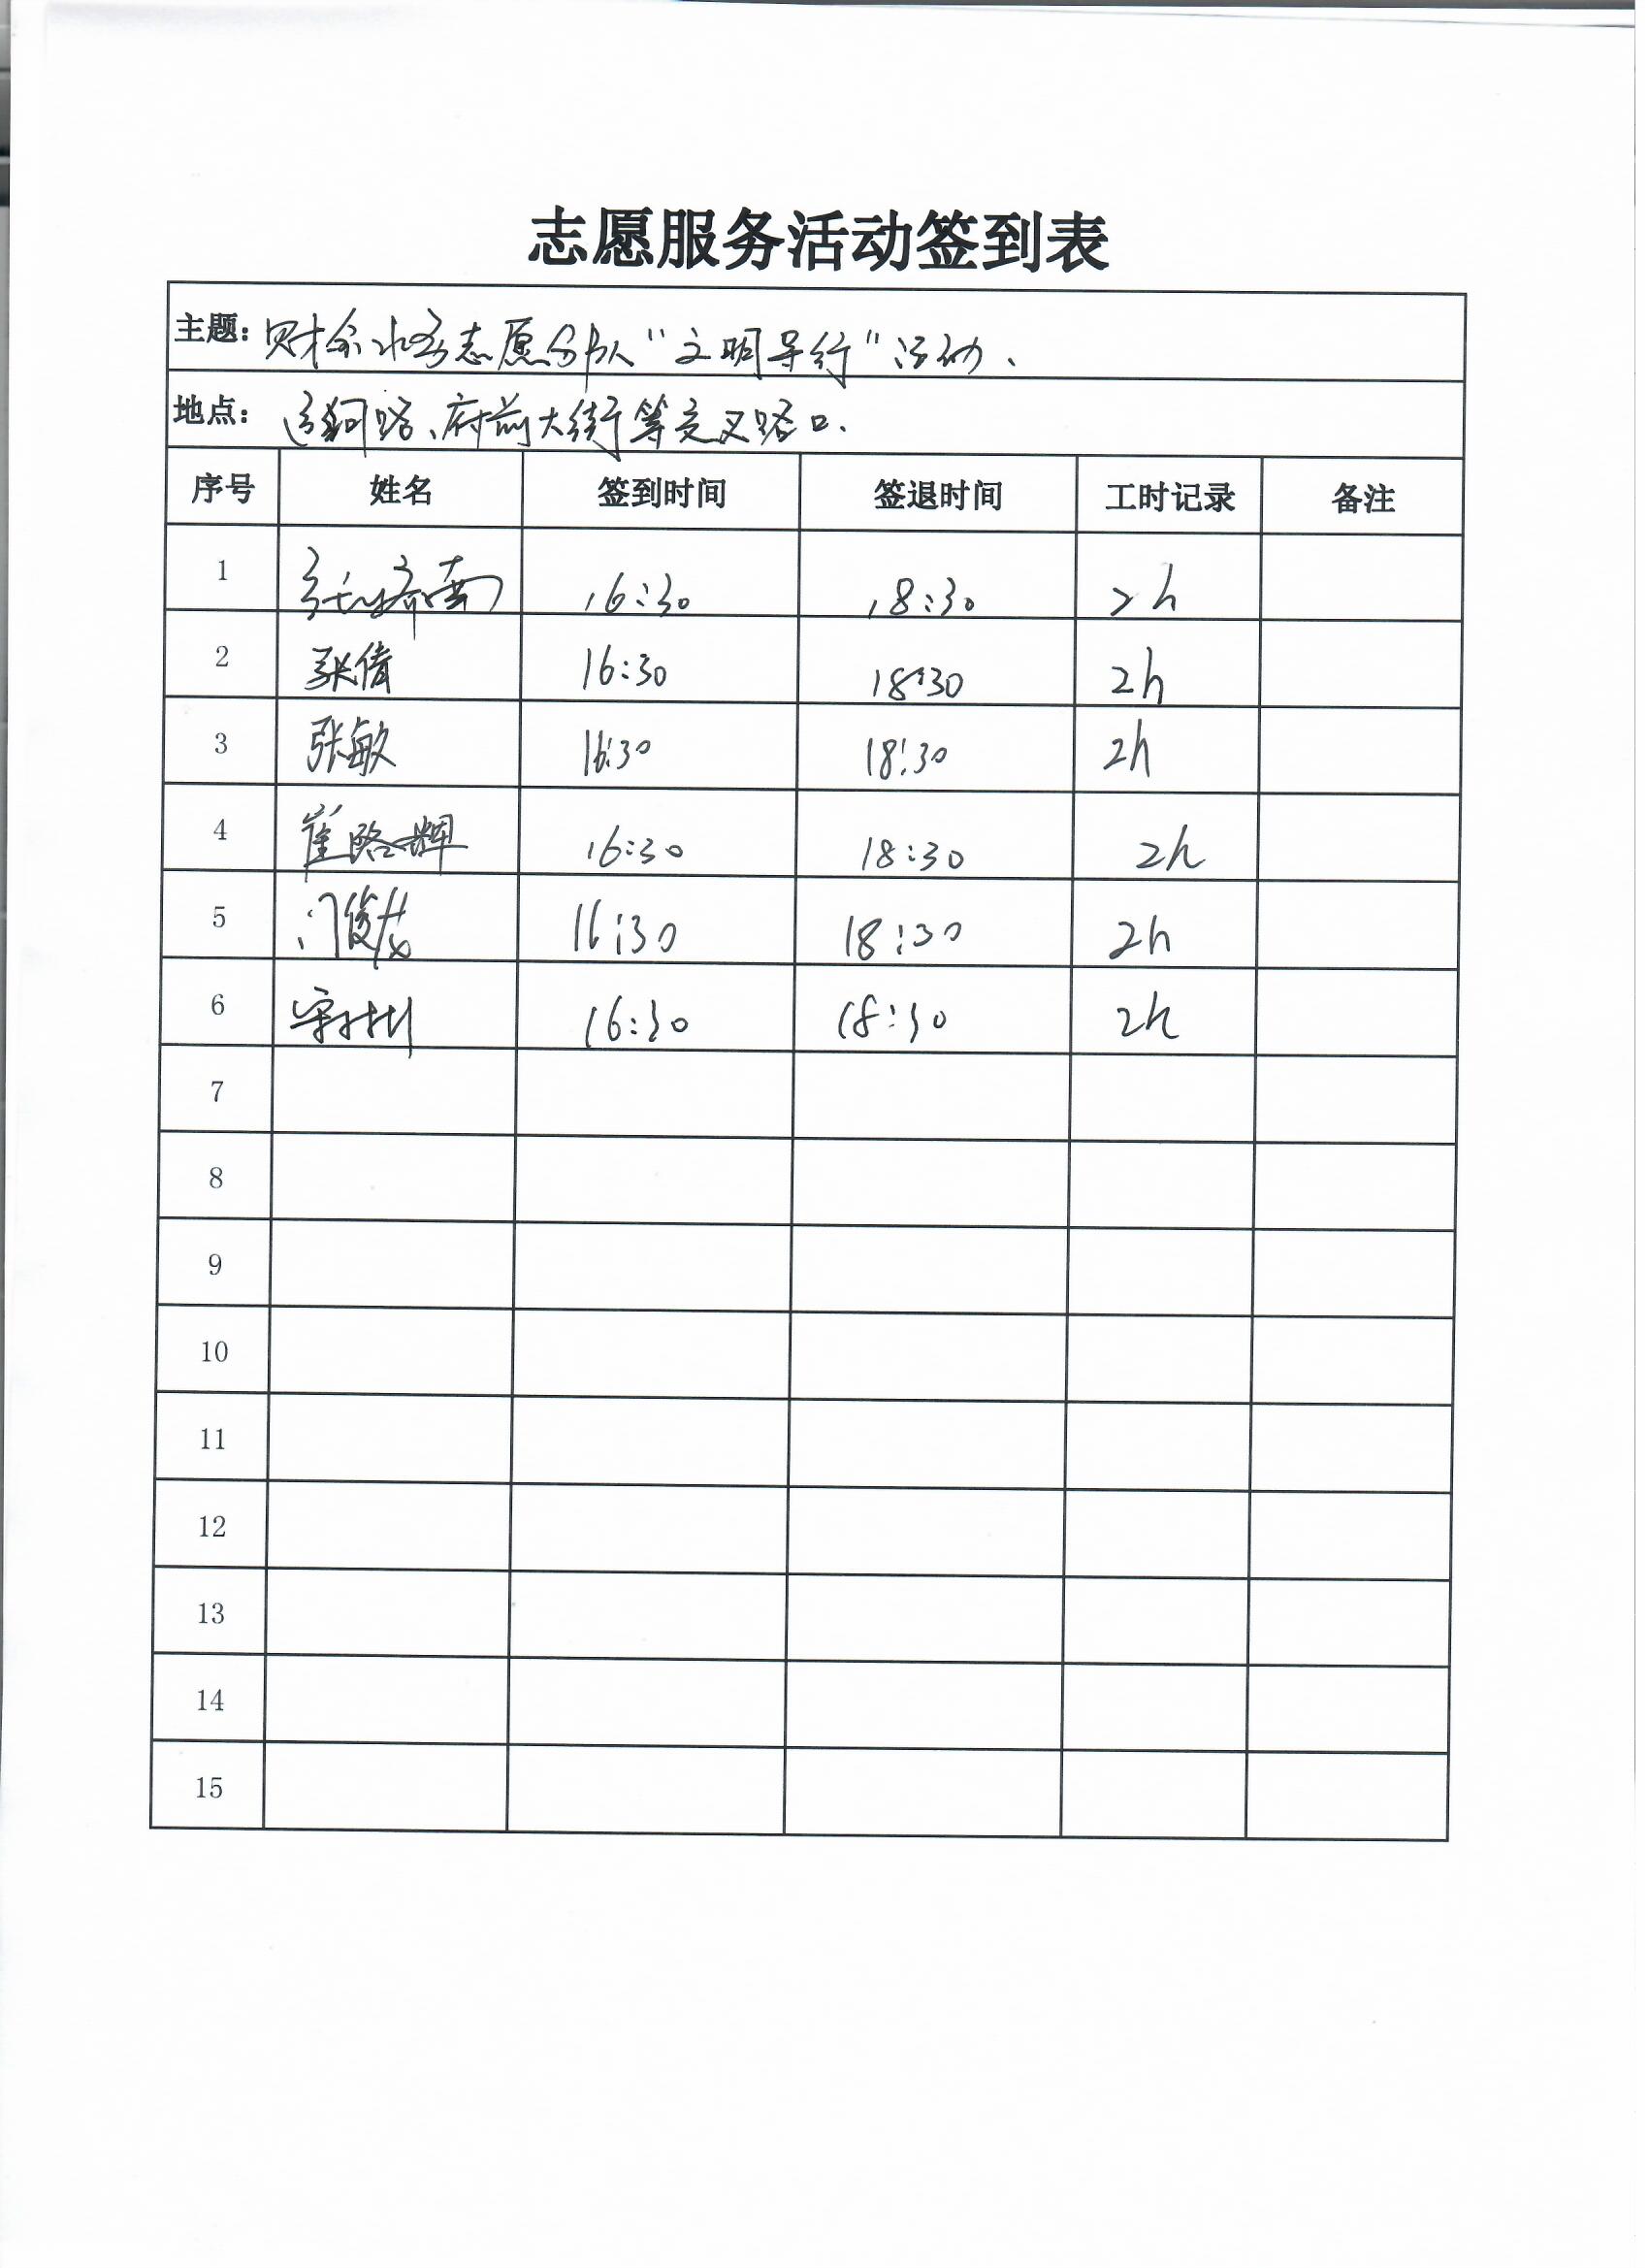 志愿服务活动签到表
主题: 志愿分队“文明导行”活动.
地点: 路、府前大街等交叉路口.
序号 姓名 签到时间 签退时间 工时记录 备注
1 16:30 18:30 2h
2 张倩 16:30 18:30 2h
3 张敏 16:30 18:30 2h
4 崔路辉 16:30 18:30 2h
5 16:30 18:30 2h
6 16:30 18:30 2h
7
8
9
10
11
12
13
14
15